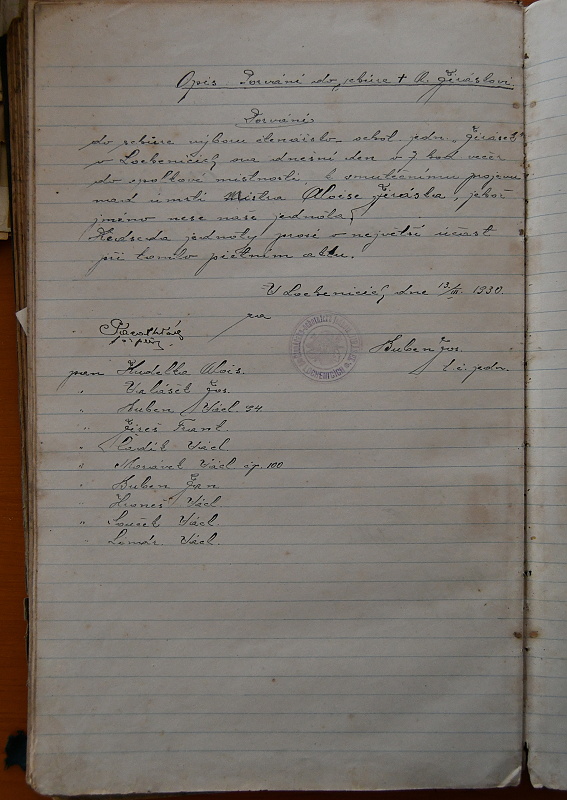 Opis Pozvání do schůze † A. Jiráskovi
Pozvání
do schůze výboru čtenářsko- ochot. jedn. „Jirásek"
v Locheničích, na dnešní den v 7 hod večer
do spolkové místnosti, k smutečnímu projevu
nad úmrtí Mistra Aloise Jiráska, jehož
jméno nese naše jednota,
Předseda jednoty prosí o největší účast
při tomto pietním aktu.
V Locheničích, dne 13/III. 1930.
za
Duben Jos.
t. č. jedn.
pan Hudelka Alois.
" Valášek Jos.
" Duben Václ. 94
" Jireš Frant.
" Václ.
" Moravek Václ čp. 100
" Duben Jan
" Václ.
" Souček Václ.
" Václ.